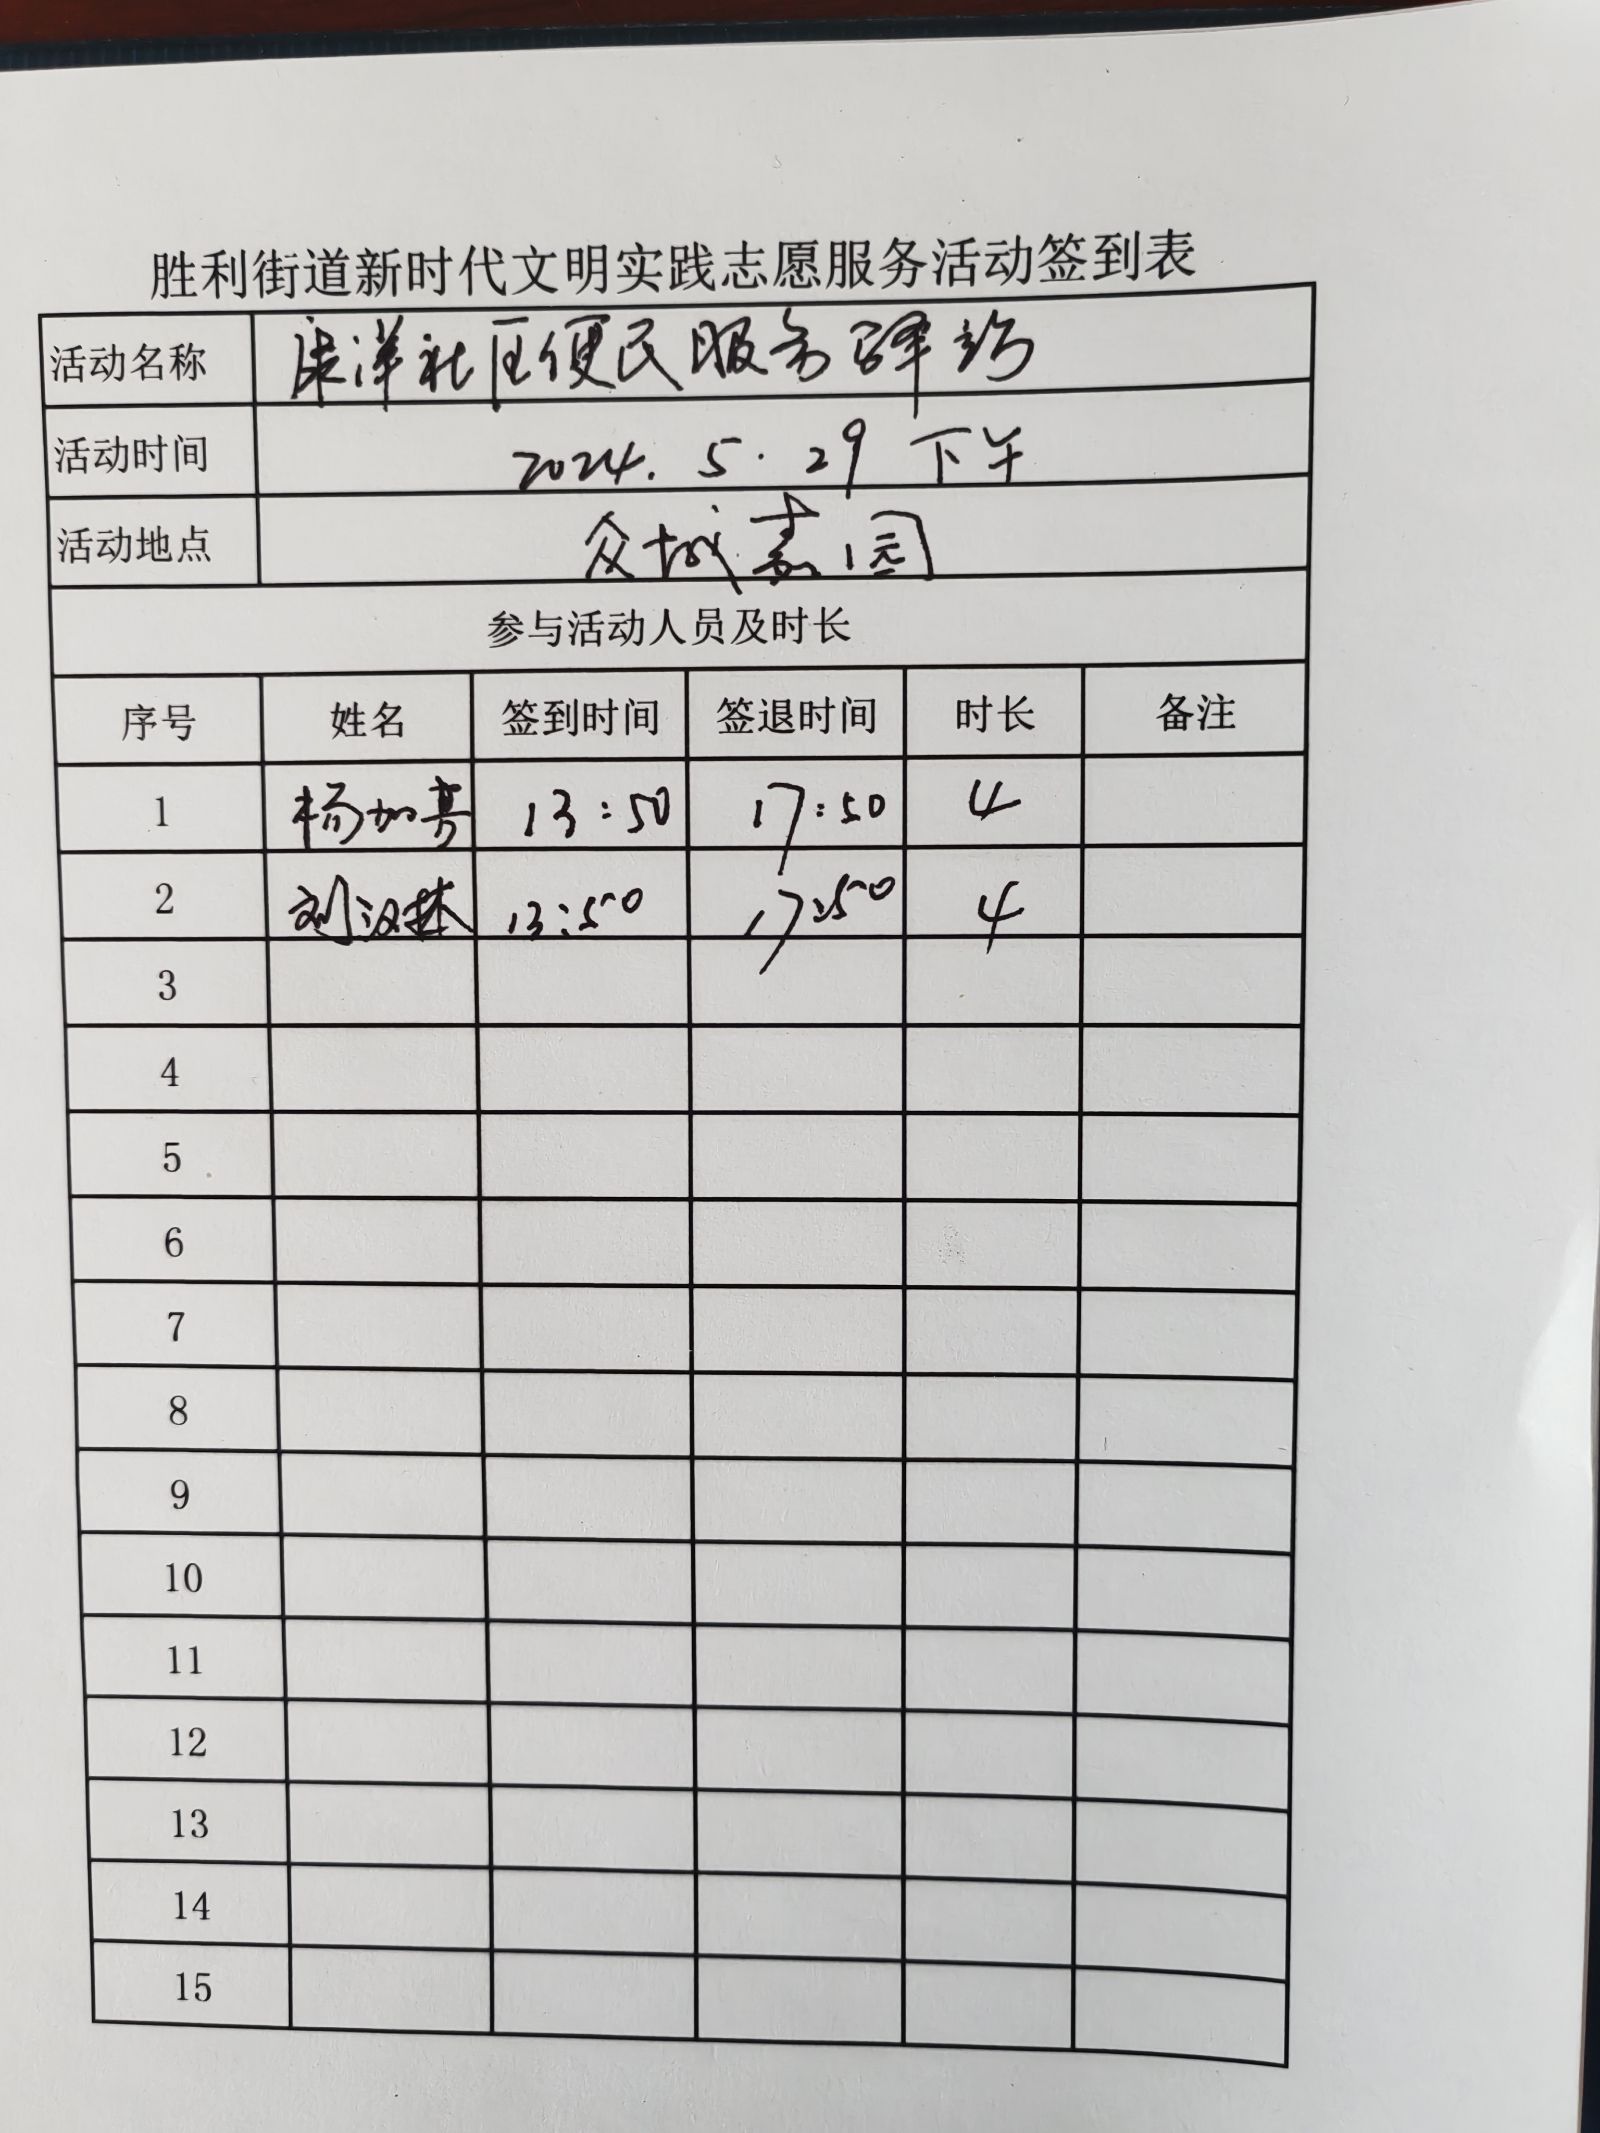 胜利街道新时代文明实践志愿服务活动签到表
活动名称 洋社区便民服务驿站
活动时间 2024.5.29下午
活动地点 众城嘉园
参与活动人员及时长
序号 姓名 签到时间 签退时间 时长 备注
1 杨加亮 13:50 17:50 4
2 刘汉林 13:50 17:50 4
3
4
5
6
7
8
9
10
11
12
13
14
15